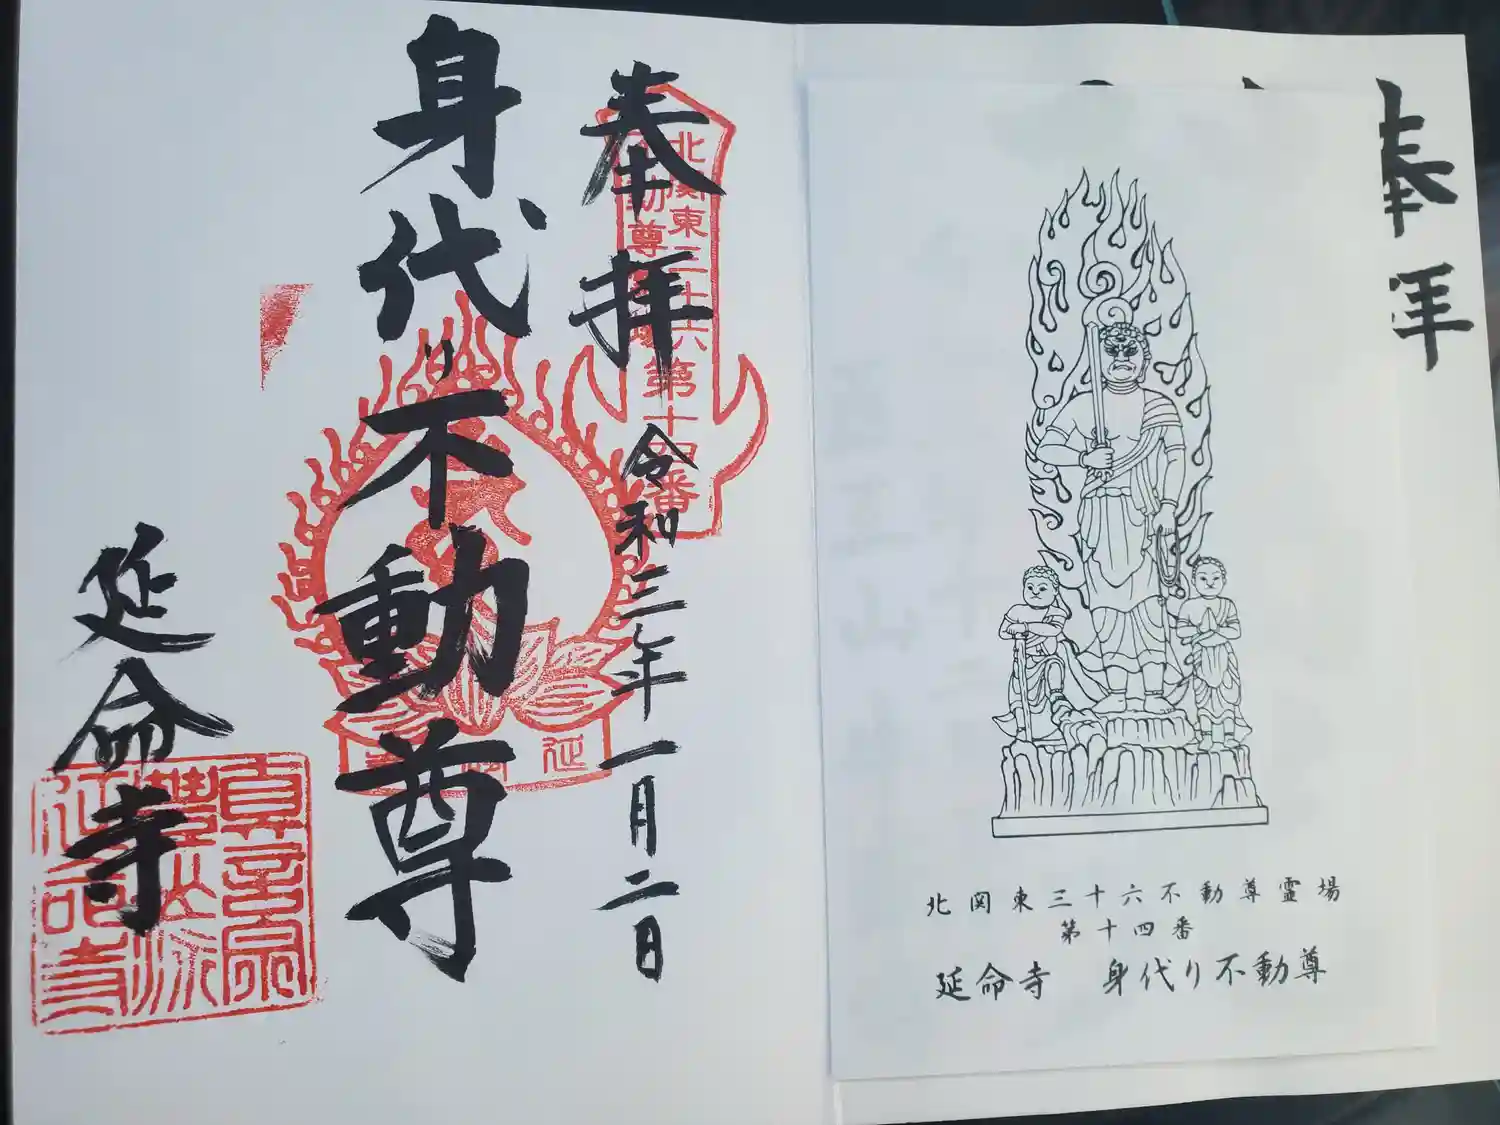 奉拝
北関東三十六
第十四番
令和三年一月二日
身代り不動尊
延命寺
奉拝
北関東三十六不動尊霊場
第十四番
延命寺 身代り不動尊